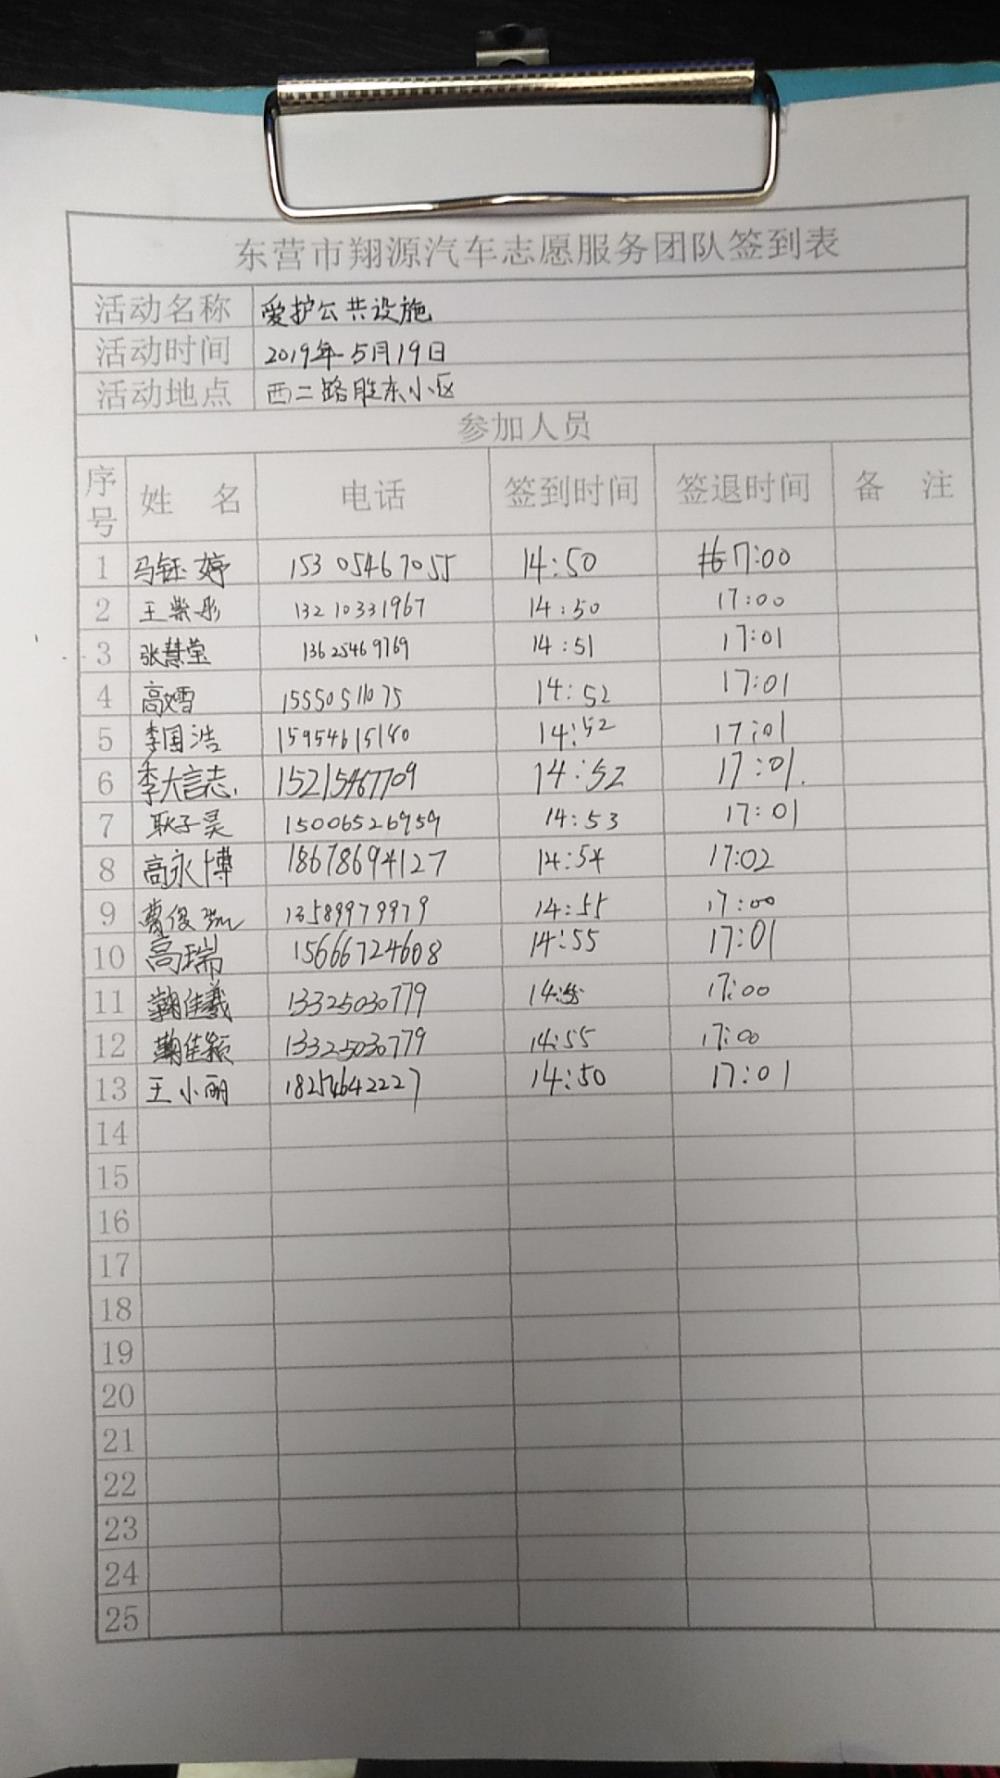 东营市翔源汽车志愿服务团队签到表
活动名称 爱护公共设施
活动时间 2019年5月19日
活动地点 西二路胜东小区
参加人员
序号 姓 名 电话 签到时间 签退时间 备 注
1 马钰婷 15305467055 14:50 17:00
2 王紫彤 13210331967 14:50 17:00
3 张慧莹 13625469769 14:51 17:01
4 高嫦 15550511075 14:52 17:01
5 李国浩 15954615180 14:52 17:01
6 李大志 15215467709 14:52 17:01.
7 耿子昊 15006526959 14:53 17:01
8 高永博 18678694127 14:54 17:02
9 曹俊 13589979979 14:55 17:00
10 高瑞 15666724608 14:55 17:01
11 鞠佳羲 13325030779 14:55 17:00
12 鞠佳颖 13325030779 14:55 17:00
13 王小丽 18254642227 14:50 17:01
14
15
16
17
18
19
20
21
22
23
24
25